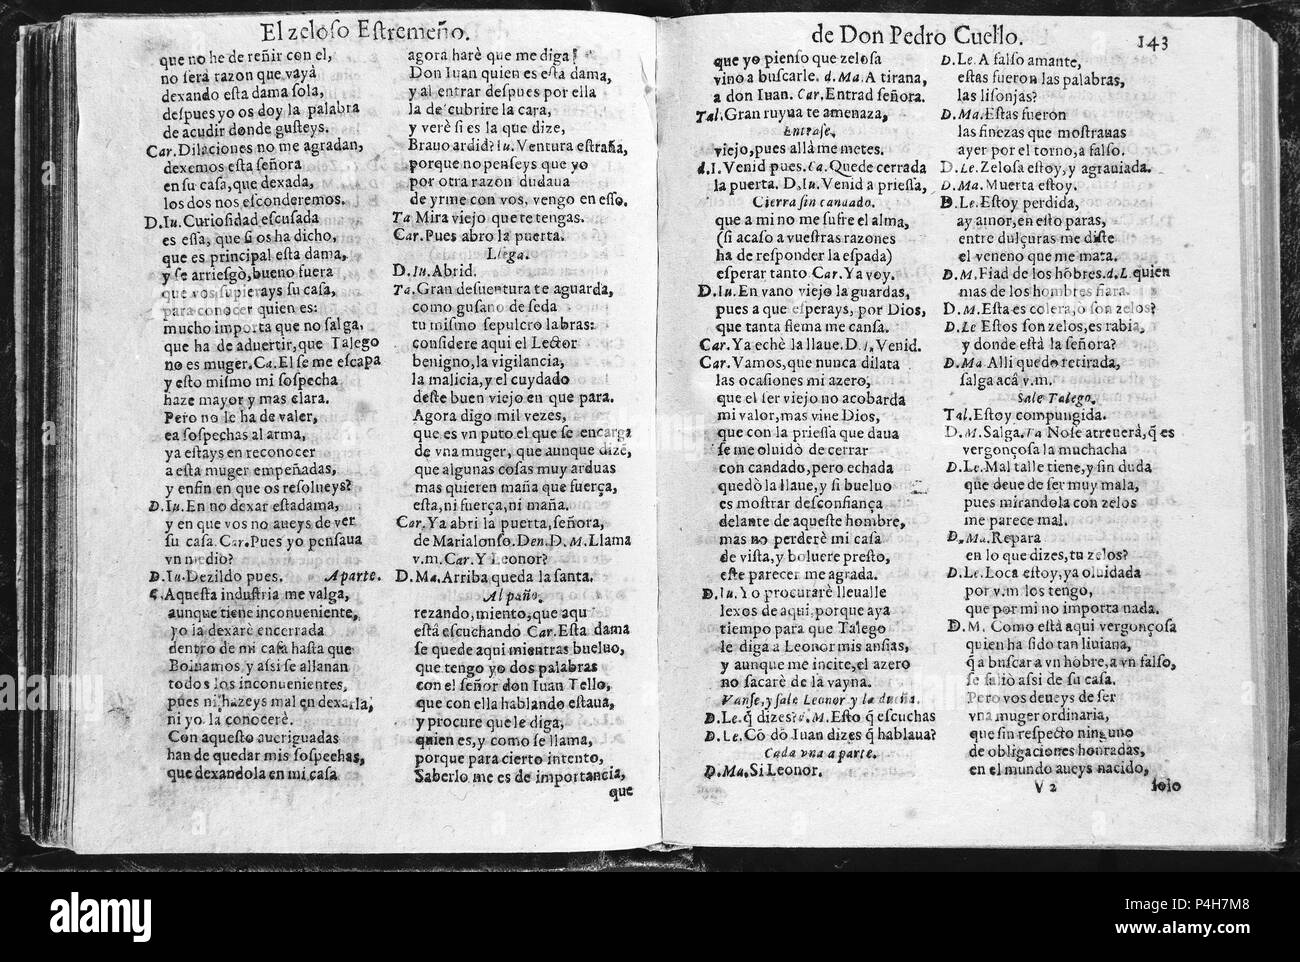 El zeloſo Eſtremeño.
que no he de reñir con el,
no ſerà razon que vayà
dexando eſta dama ſola,
deſpues yo os doy la palabra
de acudir donde guſteys.
Car. Dilaciones no me agradan,
dexemos eſta ſeñora
en ſu caſa, que dexada,
los dos nos eſconderemos.
D. Iu. Curioſidad eſcuſada
es eſſa, que ſi os ha dicho,
que es principal eſta dama,
y ſe arrieſgò, bueno fuera
que vos ſupierays ſu caſa,
para conocer quien es:
mucho importa que no ſalga,
que ha de aduertir, que Talego
no es muger. Ca. El ſe me eſcapa
y eſto miſmo mi ſoſpecha
haze mayor y mas clara.
Pero no le ha de valer,
ea ſoſpechas al arma,
ya eſtays en reconocer
a eſta muger empeñadas,
y enfin en que os reſolueys?
D. Iu. En no dexar eſta dama,
y en que vos no aueys de ver
ſu caſa. Car. Pues yo penſaua
vn medio?
D. Iu. Dezildo pues. Aparte.
C. Aqueſta induſtria me valga,
aunque tiene inconueniente,
yo la dexarè encerrada
dentro de mi caſa haſta que
Boluamos, y aſsi ſe allanan
todos los inconuenientes,
pues ni hazeys mal en dexarla,
ni yo la conocerè.
Con aqueſto aueriguadas
han de quedar mis ſoſpechas,
que dexandola en mi caſa
agora harè que me diga!
Don Iuan quien es eſta dama,
y al entrar deſpues por ella
la deſcubrire la cara,
y verè ſi es la que dize,
Brauo ardid? Iu. Ventura eſtraña,
porque no penſeys que yo
por otra razon dudaua
de yrme con vos, vengo en eſſo.
Ta Mira viejo que te tengas.
Car. Pues abro la puerta.
Llega.
D. Iu. Abrid.
Ta. Gran deſuentura te aguarda,
como guſano de ſeda
tu miſmo ſepulcro labras:
conſidere aqui el Lector
benigno, la vigilancia,
la malicia, y el cuydado
deſte buen viejo en que para.
Agora digo mil vezes,
que es vn puto el que ſe encarga
de vna muger, que aunque dize,
que algunas coſas muy arduas
mas quieren maña que fuerça,
eſta, ni fuerça, ni maña.
Car. Ya abri la puerta, ſeñora,
de Marialonſo. Den. D. M. Llama
v.m. Car. Y Leonor?
D. Ma. Arriba queda la ſanta.
Al paño.
rezando, miento, que aqui
eſtà eſcuchando Car. Eſta dama
ſe quede aqui mientras bueluo,
que tengo yo dos palabras
con el ſeñor don Iuan Tello,
que con ella hablando eſtaua,
y procure que le diga,
quien es, y como ſe llama,
porque para cierto intento,
Saberlo me es de importancia,
que
de Don Pedro Cuello. 143
que yo pienſo que zeloſa
vino a buſcarle. d. Ma. A tirana,
a don Iuan. Car. Entrad ſeñora.
Tal. Gran ruyna te amenaza,
Entraſe.
viejo, pues allà me metes.
d. I. Venid pues. Ca. Quede cerrada
la puerta. D. Iu. Venid a prieſſa,
Cierra ſin candado.
que a mi no me ſufre el alma,
(ſi acaſo a vueſtras razones
ha de reſponder la eſpada)
eſperar tanto Car. Ya voy.
D. Iu. En vano viejo la guardas,
pues a que eſperays, por Dios,
que tanta flema me canſa.
Car. Ya echè la llaue. D. I. Venid.
Car. Vamos, que nunca dilata
las ocaſiones mi azero;
que el ſer viejo no acobarda
mi valor, mas viue Dios,
que con la prieſſa que daua
ſe me oluidò de cerrar
con candado, pero echada
quedò la llaue, y ſi bueluo
es moſtrar deſconfiança
delante de aqueſte hombre,
mas no perderè mi caſa
de viſta, y boluere preſto,
eſte parecer me agrada.
D. Iu. Yo procurarè lleualle
lexos de aqui, porque aya
tiempo para que Talego
le diga a Leonor mis anſias,
y aunque me incite, el azero
no ſacarè de la vayna.
Vanſe, y ſale Leonor y la dueña.
D. Le. q̃ dizes? d. M. Eſto q̃ eſcuchas
D. Le. Cõ dõ Iuan dizes q̃ hablaua?
Cada vna a parte.
D. Ma. Si Leonor.
D. Le. A falſo amante,
eſtas fueron las palabras,
las liſonjas?
D. Ma. Eſtas fueron
las finezas que moſtrauas
ayer por el torno, a falſo.
D. Le. Zeloſa eſtoy, y agrauiada.
D. Ma. Muerta eſtoy.
D. Le. Eſtoy perdida,
ay amor, en eſto paras,
entre dulçuras me diſte
el veneno que me mata.
D. M. Fiad de los hõbres. d. L. quien
mas de los hombres fiara.
D. M. Eſta es colera, ò ſon zelos?
D. Le Eſtos ſon zelos, es rabia,
y donde eſtà la ſeñora?
D. Ma Alli quedo retirada,
ſalga acà v.m.
Sale Talego.
Tal. Eſtoy compungida.
D. M. Salga. Ta No ſe atreuerà, q̃ es
vergonçoſa la muchacha
D. Le. Mal talle tiene, y ſin duda
que deue de ſer muy mala,
pues mirandola con zelos
me parece mal.
D. Ma. Repara
en lo que dizes, tu zelos?
D. Le. Loca eſtoy, ya oluidada
por v.m los tengo,
que por mi no importa nada.
D. M. Como eſtà aqui vergonçoſa
quien ha ſido tan liuiana,
q̃ a buſcar a vn hõbre, a vn falſo,
ſe ſaliò aſsi de ſu caſa.
Pero vos deueys de ſer
vna muger ordinaria,
que ſin reſpecto ninguno
de obligaciones honradas,
en el mundo aueys nacido,
V 2 ſolo
alamy
Image ID: P4H7M8
www.alamy.com